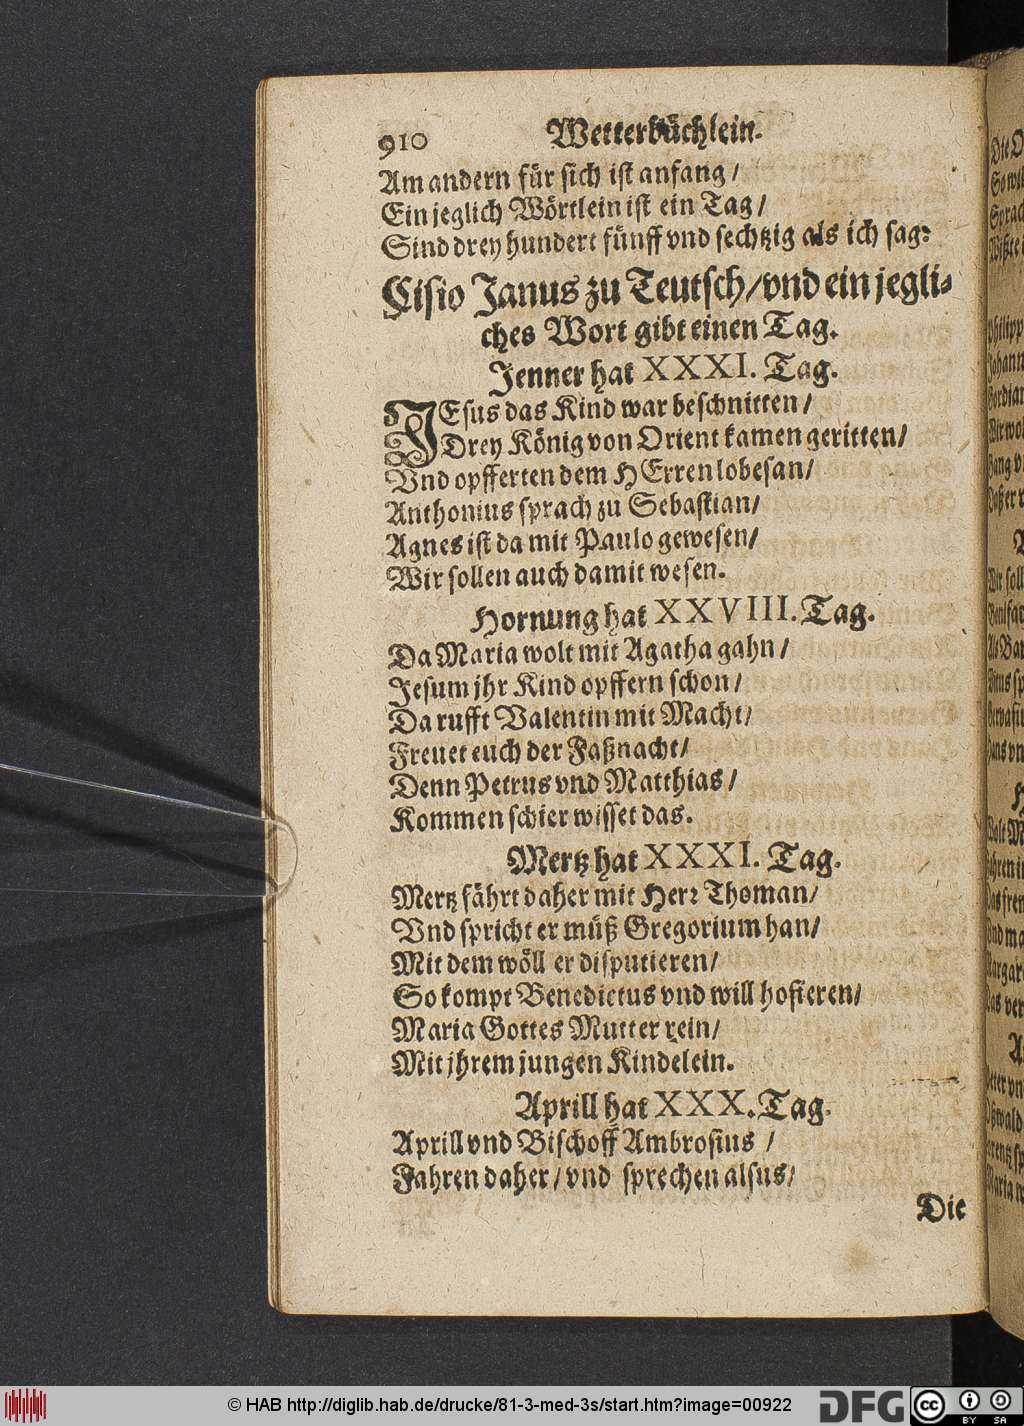 910 Wetterbüchlein.
Am andern für sich ist anfang /
Ein jeglich Wörtlein ist ein Tag /
Sind drey hundert fünff vnd sechtzig als ich sag:
Cisio Janus zu Teutsch / vnd ein jegli-
ches Wort gibt einen Tag.
Jenner hat XXXI. Tag.
JEsus das Kind war beschnitten /
Drey König von Orient kamen geritten /
Vnd opfferten dem HErren lobesan /
Anthonius sprach zu Sebastian /
Agnes ist da mit Paulo gewesen /
Wir sollen auch damit wesen.
Hornung hat XXVIII. Tag.
Da Maria wolt mit Agatha gahn /
Jesum jhr Kind opffern schon /
Da rufft Valentin mit Macht /
Frewet euch der Faßnacht /
Denn Petrus vnd Matthias /
Kommen schier wisset das.
Mertz hat XXXI. Tag.
Mertz fährt daher mit Herr Thoman /
Vnd spricht er müß Gregorium han /
Mit dem wöll er disputieren /
So kompt Benedictus vnd will hofieren /
Maria Gottes Mutter rein /
Mit jhrem jungen Kindelein.
Aprill hat XXX. Tag.
Aprill vnd Bischoff Ambrosius /
Fahren daher / vnd sprechen alsus /
Die
© HAB http://diglib.hab.de/drucke/81-3-med-3s/start.htm?image=00922
DFG
cc BY SA